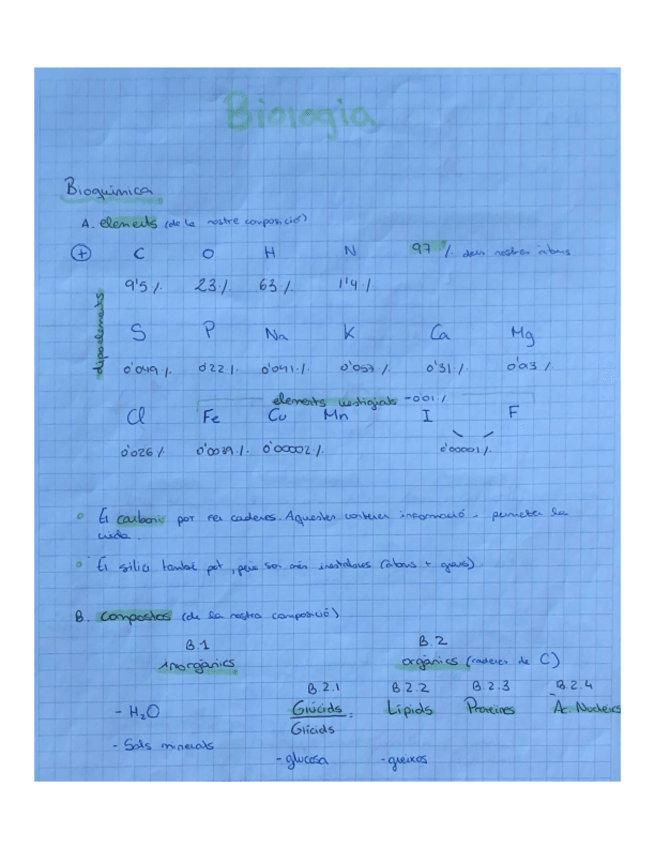 Biologia
Bioquimica
A. elements (de la nostre composició)
+ C O H N 97 % dels nostres àtoms
9'5 % 23 % 63 % 1'4 %
S P Na K Ca Mg
0'049 % 022 % 0'041 % 0'31 % 0'03 %
elements vestigials -0'01 %
Cl Fe Cu Mn I F
0'026 % 0'0039 % 0'00002 % 0'00001 %
El carboni pot fer cadenes. Aquestes contenen informació permeten la
vida.
El silici també pot, però són més inestables (àtoms + grans)
B. Compostos (de la nostra composició)
B.1 B.2
inorgànics orgànics (cadenes de C)
B.2.1 B.2.2 B.2.3 B.2.4
- H₂O Glúcids = Lípids Proteïnes Ac. Nucleics
Glícids
- Sals minerals
- glucosa - greixos